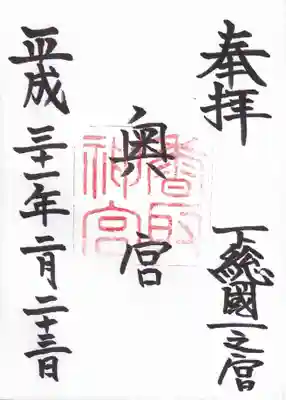 奉拝
下総國一之宮
奥宮
香取神宮
平成三十一年二月二十三日